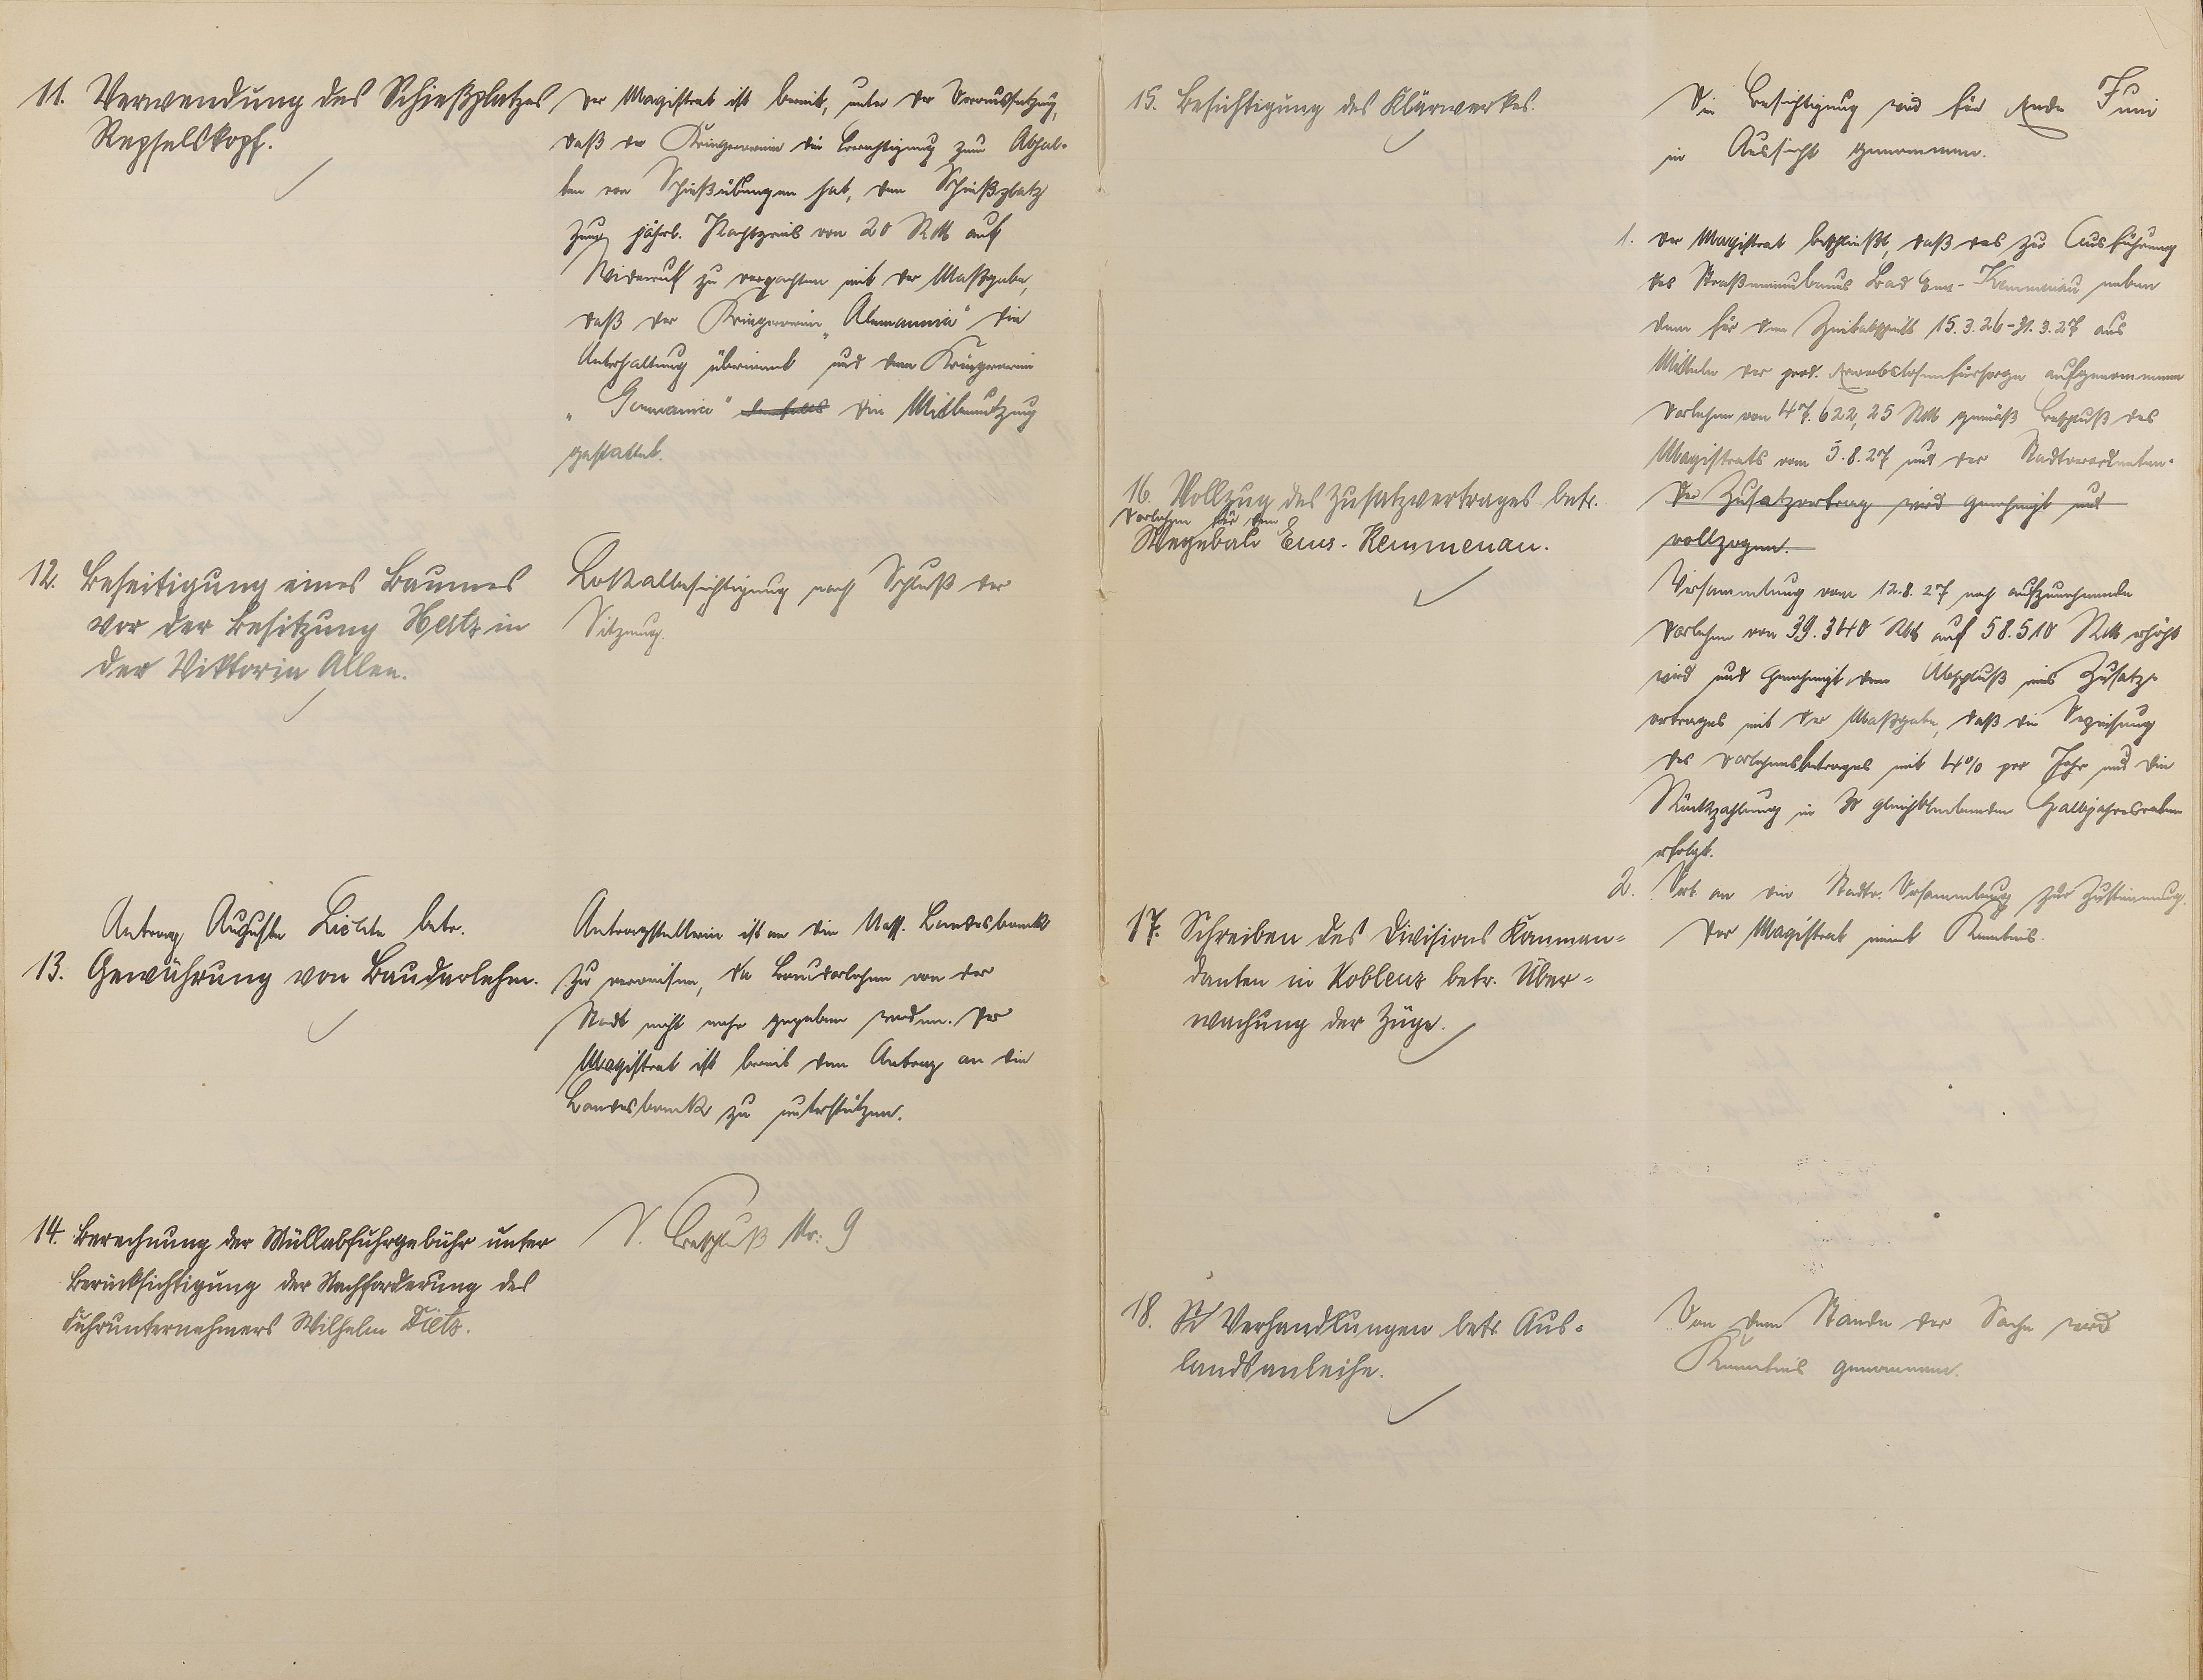 11. Verwendung des Schießplatzes
Repselskopf.
Der Magistrat ist bereit, unter der Voraussetzung,
daß der Kriegerverein die Berechtigung zum Abhal-
ten von Schießübungen hat, den Schießplatz
zum jährl. Pachtpreis von 20 RM auf
Widerruf zu verpachten mit der Maßgabe,
daß der Kriegerverein „Alemannia" die
Unterhaltung übernimmt und dem Kriegerverein
„Germania" die Mitbenutzung
gestattet.
12. Beseitigung eines Baumes
vor der Besitzung Hertz in
der Viktoria Allee.
Lokalbesichtigung nach Schluß der
Sitzung.
Antrag Auguste Lichte betr.
13. Gewährung von Baudarlehn.
Antragstellerin ist an die Nass. Landesbank
zu verweisen, da Baudarlehen von der
Stadt nicht mehr gegeben werden. Der
Magistrat ist bereit den Antrag an die
Landesbank zu unterstützen.
14. Berechnung der Müllabfuhrgebühr unter
Berücksichtigung der Nachforderung des
Fuhrunternehmers Wilhelm Dietz.
S. Beschluß Nr: 9
15. Besichtigung des Klärwerkes.
Die Besichtigung wird für Ende Juni
in Aussicht genommen.
16. Vollzug des Zusatzvertrages betr.
Darlehen für den
Wegebau Ems-Kemmenau.
1. Der Magistrat beschließt, daß das zur Ausführung
des Straßenneubaues Bad Ems-Kemmenau neben
dem für den Zeitabschnitt 15.3.26-31.3.27 aus
Mitteln der prod. Erwerbslosenfürsorge aufgenommenen
Darlehen von 47.622,25 RM gemäß Beschluß des
Magistrats vom 5.8.27 und der Stadtverordneten-
Der Zusatzvertrag wird genehmigt und
vollzogen.
Versammlung vom 12.8.27 noch aufzunehmende
Darlehen von 39.340 RM auf 58.510 RM erhöht
wird und genehmigt den Abschluß eines Zusatz-
vertrages mit der Maßgabe, daß die Verzinsung
des Darlehensbetrages mit 4% pro Jahr und die
Rückzahlung in 30 gleichbleibenden Halbjahresraten
erfolgt.
2. Urk. an die Stadtv. Versammlung zur Zustimmung.
17. Schreiben des Divisions Komman-
danten in Koblenz betr. Über-
wachung der Züge.
Der Magistrat nimmt Kenntnis.
18. Verhandlungen betr. Aus-
landsanleihe.
Von dem Stande der Sache wird
Kenntnis genommen.